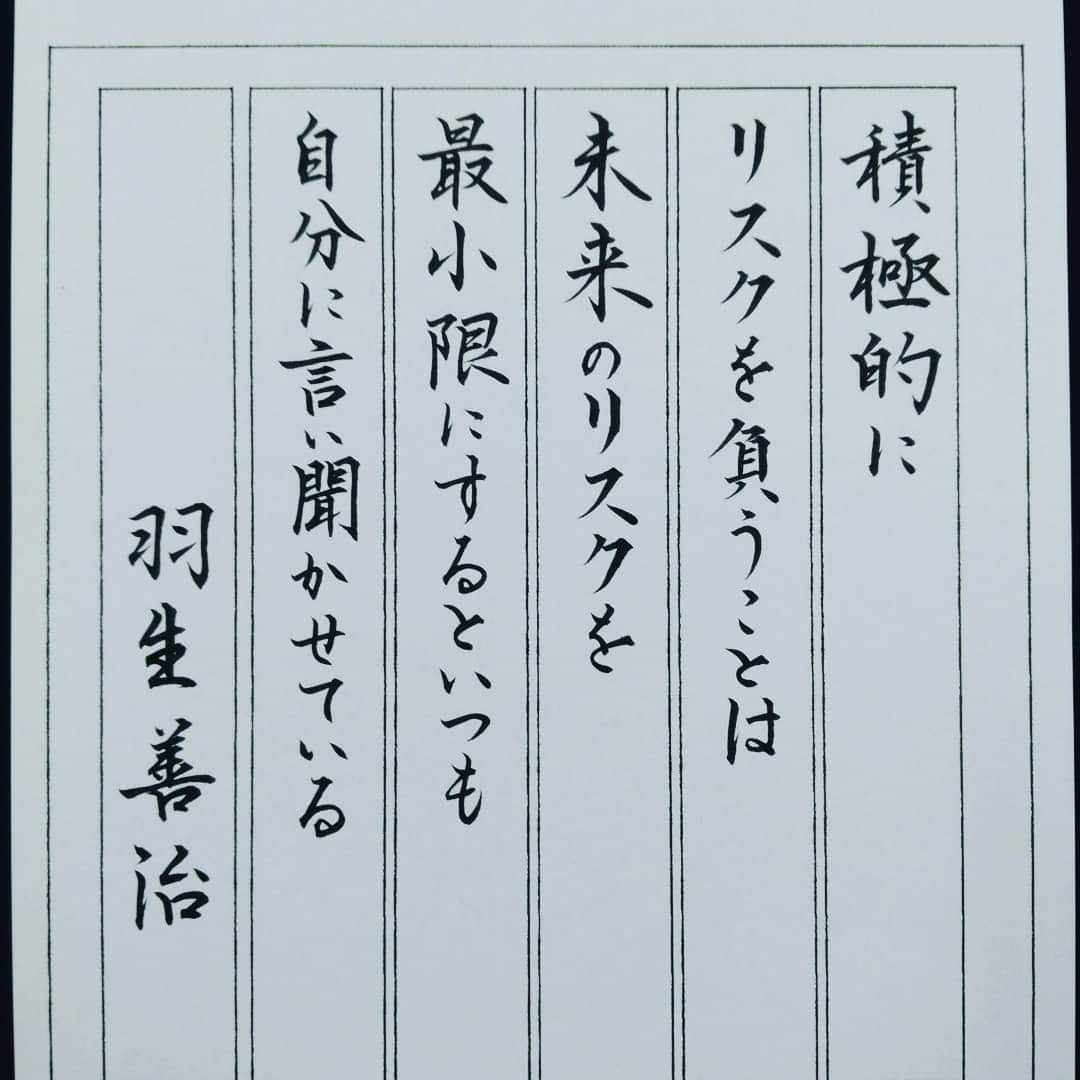 積極的に
リスクを負うことは
未来のリスクを
最小限にするといつも
自分に言い聞かせている
羽生善治